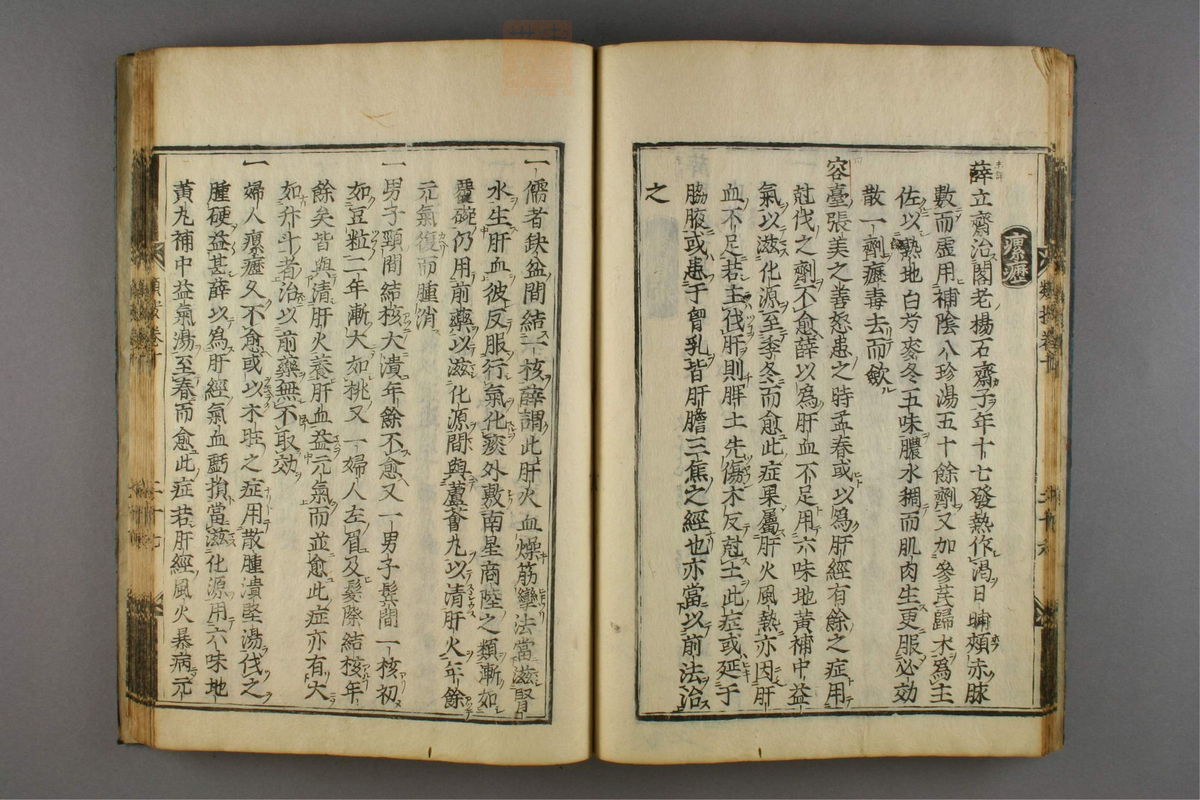 瘰癧
薛立齋治閣老楊石齋子年十七發熱作渴日晡頰赤脉
數而虛用補陰八珍湯五十餘劑又加參芪歸朮爲主
佐以熟地白芍麥冬五味膿水稠而肌肉生更服必効
散一劑癧毒去而斂
容臺張美之善怒患之時孟春或以爲肝經有餘之症用
尅伐之劑不愈薛以爲肝血不足用六味地黃補中益
氣以滋化源至季冬而愈此症果屬肝火風熱亦因肝
血不足若主伐肝則脾土先傷木反尅土此症或延于
脇腋或患于胷乳皆肝膽三焦之經也亦當以前法治
之
一儒者缺盆間結一核薛謂此肝火血燥筋攣法當滋腎
水生肝血彼反服行氣化痰外敷南星商陸之類漸如
覆碗仍用前藥以滋化源間與蘆薈丸以清肝火年餘
元氣復而腫消
一男子頸間結核大潰年餘不愈又一男子鬢間一核初
如豆粒二年漸大如桃又一婦人左眉及髮際結核年
餘矣皆與清肝火養肝血益元氣而並愈此症亦有大
如升斗者治以前藥無不取効
一婦人瘰癧久不愈或以木旺之症用散腫潰堅湯伐之
腫硬益甚薛以爲肝經氣血虧損當滋化源用六味地
黃丸補中益氣湯至春而愈此症若肝經風火暴病元
卷十
二十七